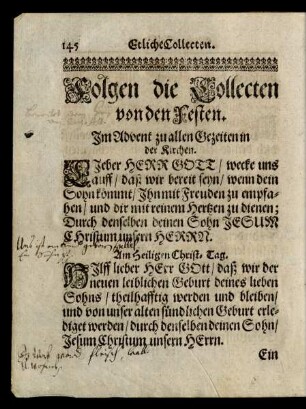 145 Etliche Collecten.
Folgen die Collecten
von den Festen.
Im Advent zu allen Gezeiten in
der Kirchen.
LIeber HERR GOTT / wecke uns
auff / daß wir bereit seyn / wenn dein
Sohn kömmt / Ihn mit Freuden zu empfa-
hen / und dir mit reinem Hertzen zu dienen;
Durch denselben deinen Sohn JESUM
CHristum unsern HERRN.
Am Heiligen Christ- Tag.
HIlff lieber HErr GOtt / daß wir der
neuen leiblichen Geburt deines lieben
Sohns / theilhafftig werden und bleiben /
und von unser alten sündlichen Geburt erle-
diget werden / durch denselben deinen Sohn /
Jesum Christum unsern HErrn.
Ein